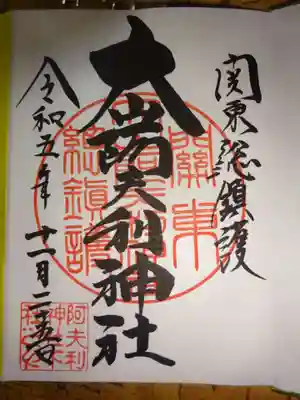 関東総鎮護
大山阿夫利神社
令和五年 十一月二
關東
總鎮護
阿夫利
神社